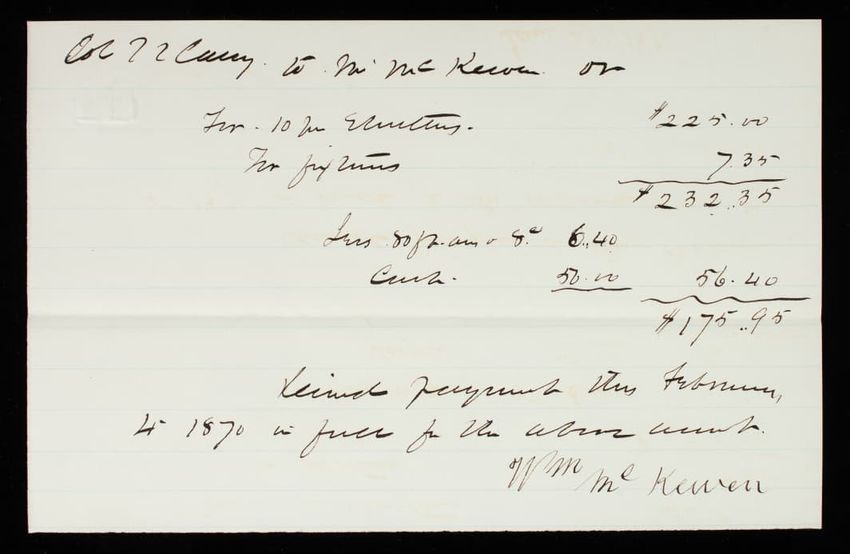 Col T L Casey to Wm McKewen Dr
For 10 pr Shutters. $225.00
For fixtures 7.35
$232.35
Less 80 8c 6.40
Cash. 50.00 56.40
$175.95
Recived payment this February
4 1870 in full for the above account.
Wm McKewen